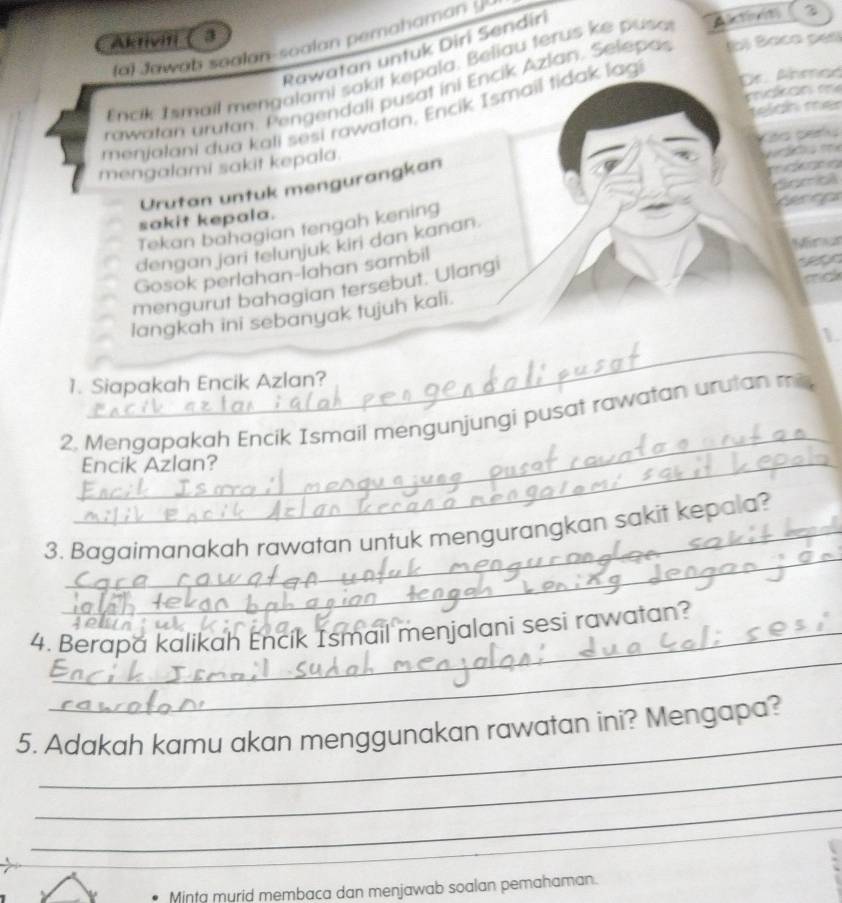 Aktiviti 3
(a) Jawab soalan-soalan pemahaman
Rawatan untuk Diri Sendiri
Encik Ismail mengalami sakit kepala. Beliau terus ke pusat
rawatan urutan. Pengendali pusat ini Encik Azlan. Selepas
menjalani dua kali sesi rawatan, Encik Ismail tidak lagi
mengalami sakit kepala.
Urutan untuk mengurangkan
sakit kepala.
Tekan bahagian tengah kening
dengan jari telunjuk kiri dan kanan.
Gosok perlahan-lahan sambil
mengurut bahagian tersebut. Ulangi
langkah ini sebanyak tujuh kali.
1. Siapakah Encik Azlan?
Encik azlan ialah pengendali pusat
2. Mengapakah Encik Ismail mengunjungi pusat rawatan urutan
Encik Azlan?
Encik Ismail mengunjung pusat rawatan urutan
milik Encik Azlan kerana mengalami sakit kepala
3. Bagaimanakah rawatan untuk mengurangkan sakit kepala?
Cara rawatan untuk mengurangkan sakit
ialah tekan bahagian tengah kening dengan jari
telunjuk kiri dan kanan.
4. Berapa kalikah Encik Ismail menjalani sesi rawatan?
Encik Ismail sudah menjalani dua kali sesi
rawatan
5. Adakah kamu akan menggunakan rawatan ini? Mengapa?
• Minta murid membaca dan menjawab soalan pemahaman.
Aktiviti 3
(b) Baca
Dr. Ahmad
makan
Minum
1.